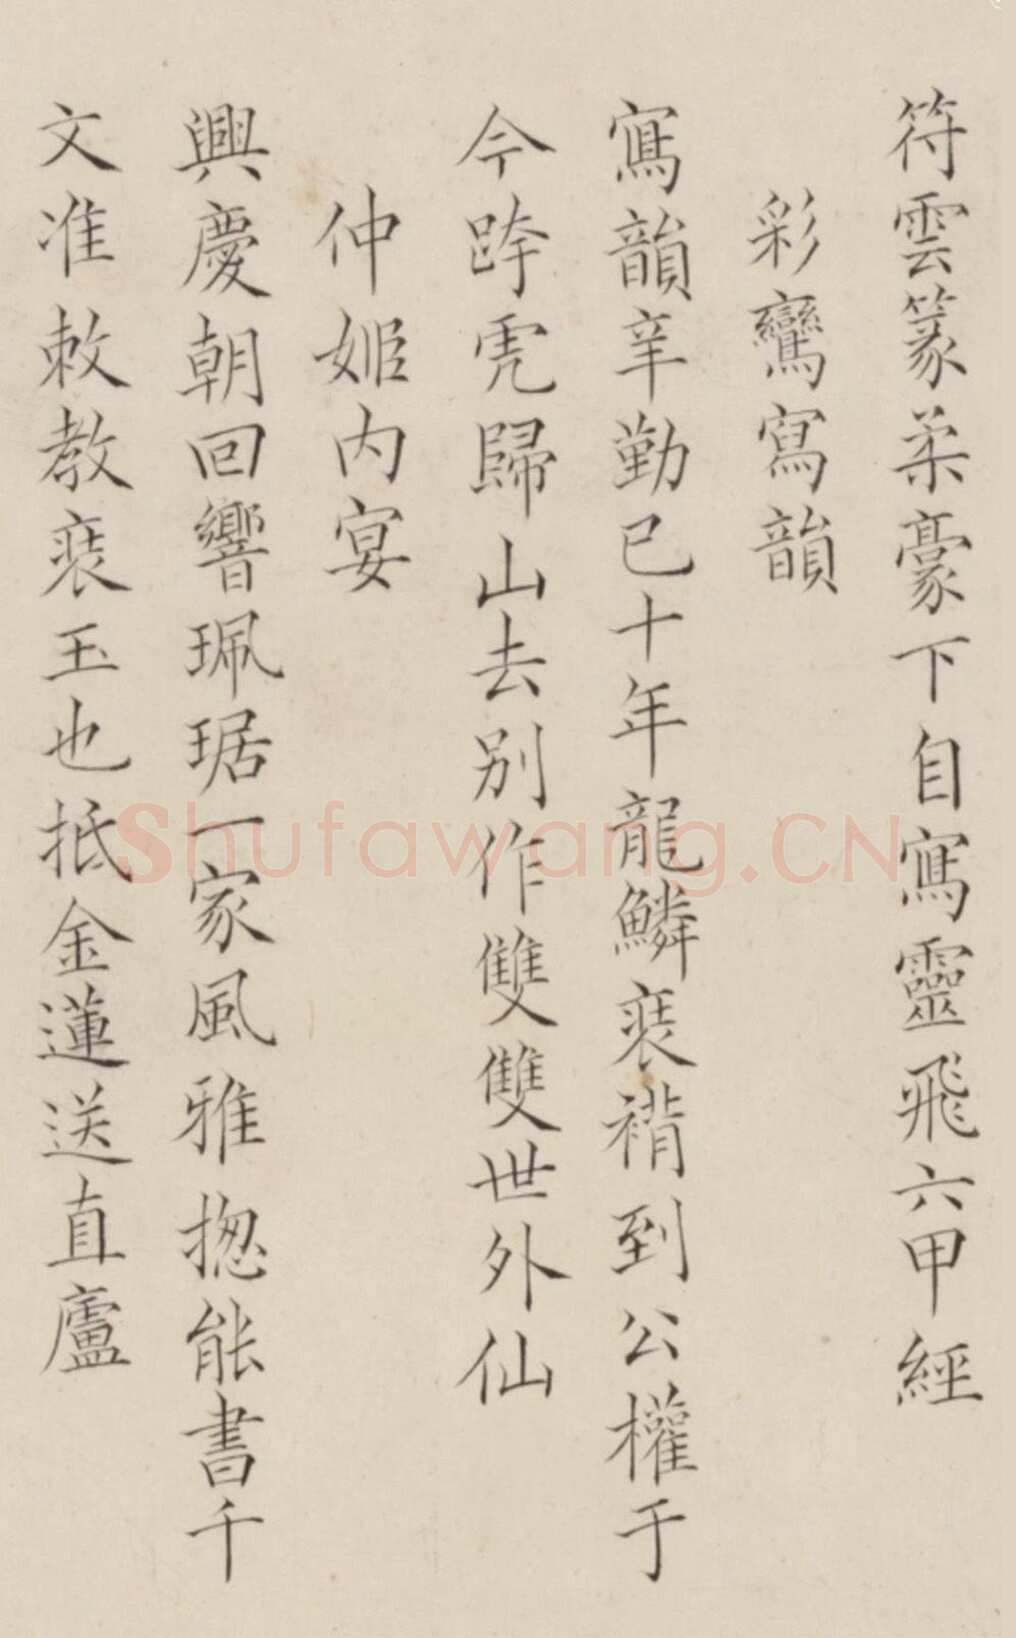 符雲篆柔豪下自寫靈飛六甲經
彩鸞寫韻
寫韻辛勤已十年龍鱗裘褙到公權于
今跨虎歸山去別作雙雙世外仙
仲姬内宴
興慶朝回響珮琚一家風雅揔能書千
文准敕教裝玉也抵金蓮送直廬
Shufawang.CN